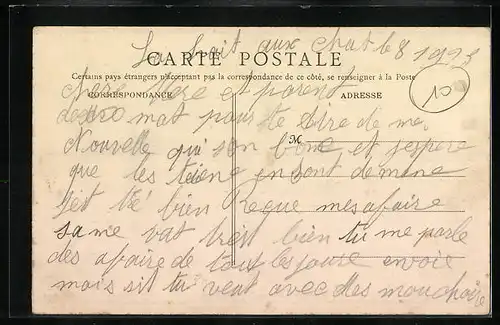 La Chat le 8 1923
CARTE POSTALE
Certains pays étrangers n'acceptant pas la correspondance de ce côté, se renseigner à la Poste
CORRESPONDANCE ADRESSE
cher père et parent
mot pour te dire de me
M
Nouvelle qui son bone et j'espère
que les tiene en sont de mene
bien Reçue mes afaire
sa me vat bien tu me parle
des afaire de tout les joure envoie
mais si tu veut avec des mouchoire